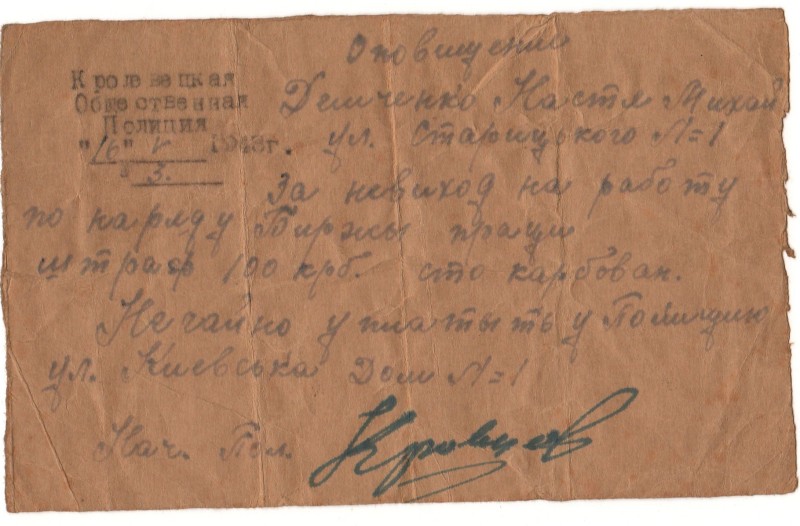 Оповищение
Кролевецкая
Общественная
Полиция
"16" V 1943г.
3.
Демченко Настя Михай
ул. Старицького №1
За невиход на работу
по наряду Биржы праци
штраф 100 крб. сто карбован.
Нечайно уплатыть у Полицию
ул. Киевська Дом №1
Нач. Пол. Кравцов